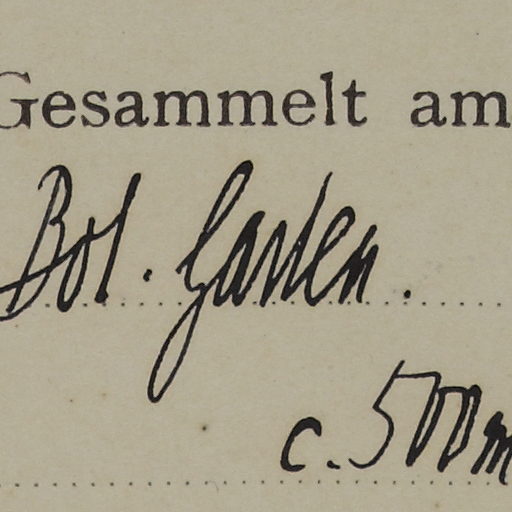 Gesammelt am
Bot. Garten.
c. 500m